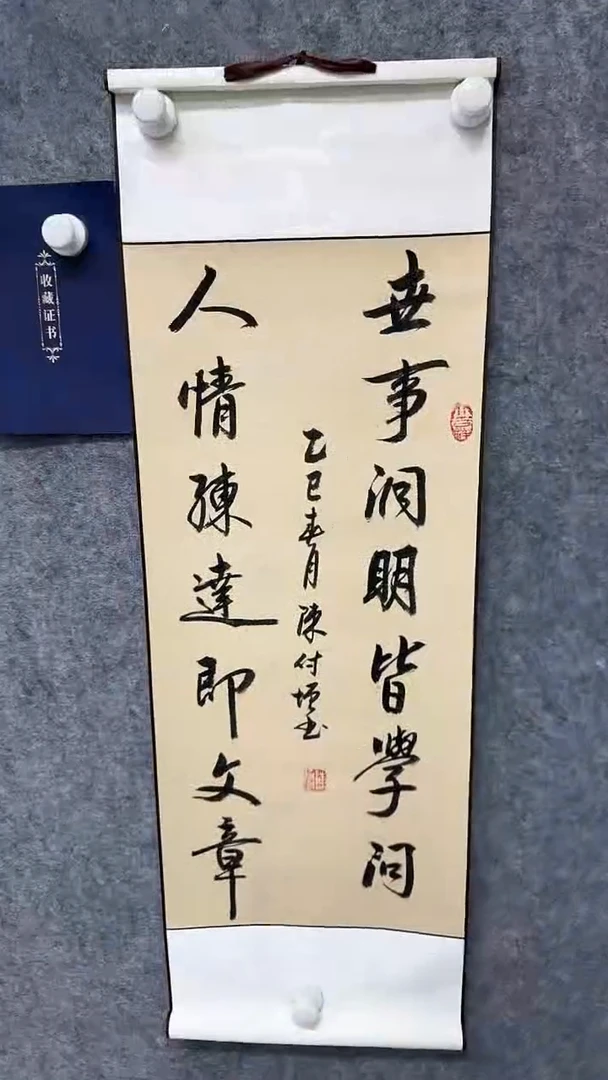 世事洞明皆學问
人情練達即文章
乙巳春月陳付恒书
收藏证书